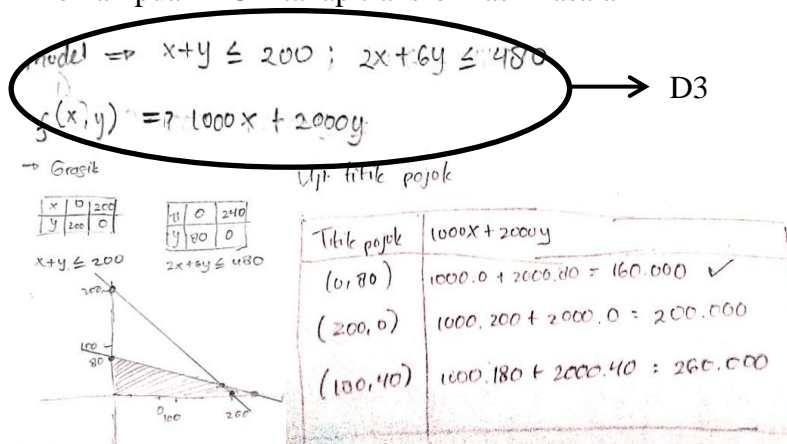 model => x+y ≤ 200 ; 2x+6y ≤ 480
f(x,y) => 1000x + 2000y
D3
→ Grafik
x 0 200
y 200 0
x+y ≤ 200
x 0 240
y 80 0
2x+6y ≤ 480
200
100
80
0 100 200
Uji titik pojok
Titik pojok 1000x + 2000y
(0,80) 1000.0 + 2000.80 = 160.000 ✓
(200,0) 1000.200 + 2000.0 = 200.000
(180,40) 1000.180 + 2000.40 = 260.000